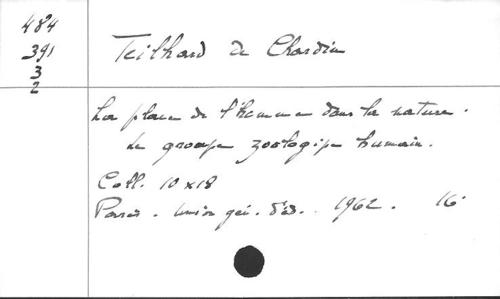 484
391
3
2
Teilhard de Chardin
La place de l'homme dans la nature.
Le groupe zoologique humain.
Coll. 10 x 18
Paris. Union gén. d'éd. 1962. 16°